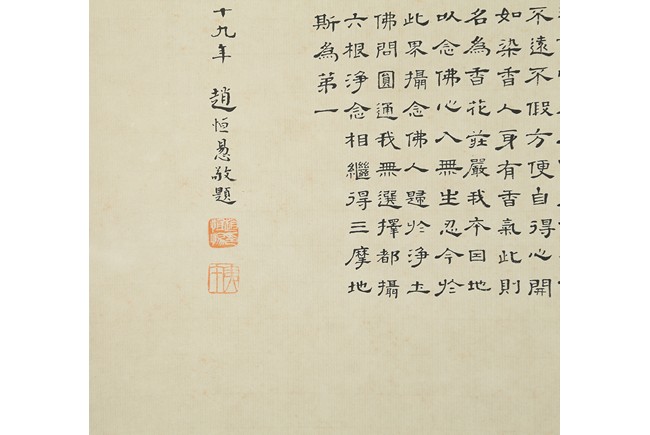 不遠不假方便自得心開
如染香人身有香氣此則
名為香花莊嚴我本因地
以念佛心入無生忍今於
此界攝念佛人歸於淨土
佛問圓通我無選擇都攝
六根淨念相繼得三摩地
斯為第一
十九年 趙恒惖敬題